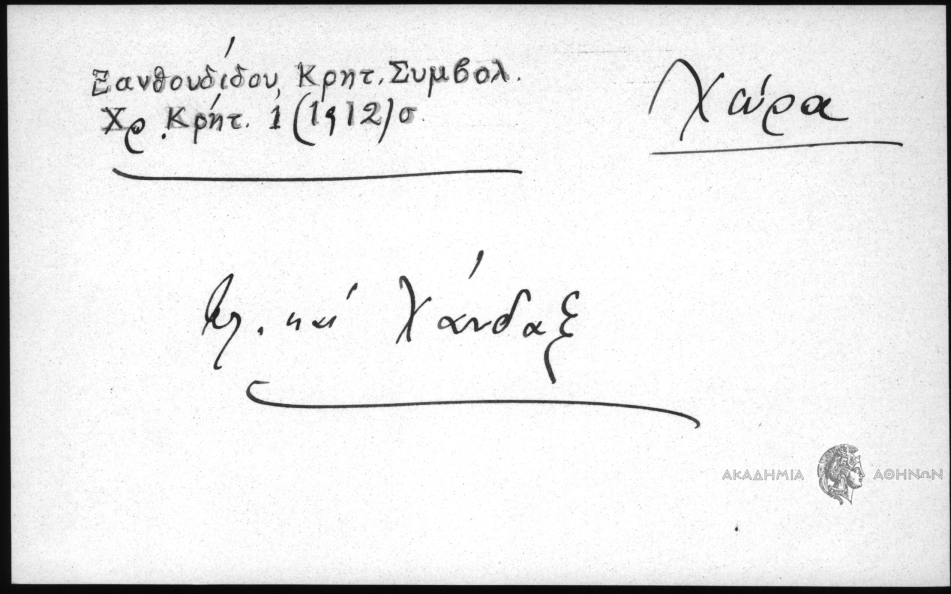 Ξανθουδίδου, Κρητ. Συμβολ.
Χρ. Κρήτ. 1 (1912) σ.
Χώρα
βλ. καί Χάνδαξ
ΑΚΑΔΗΜΙΑ ΑΘΗΝΩΝ